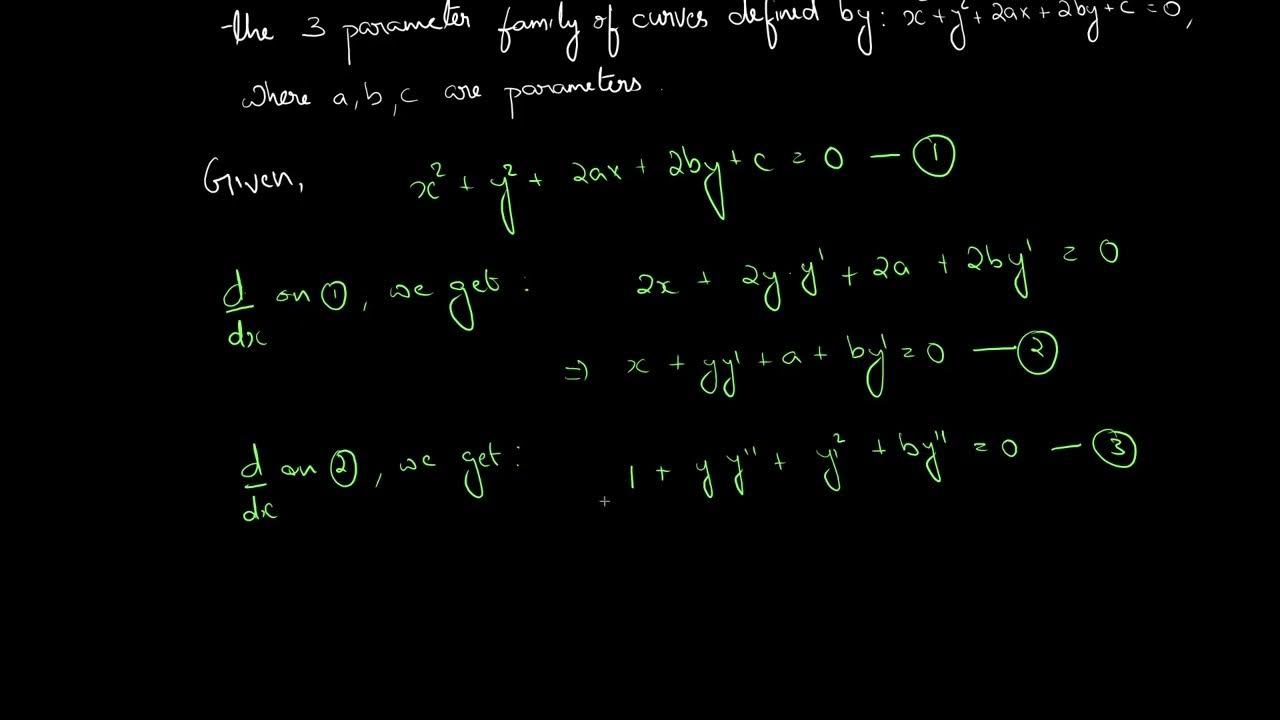 the 3 parameter family of curves defined by: x² + y² + 2ax + 2by + c = 0,
where a, b, c are parameters.
Given, x² + y² + 2ax + 2by + c = 0 — ①
d/dx on ①, we get : 2x + 2y·y' + 2a + 2by' = 0
⇒ x + yy' + a + by' = 0 — ②
d/dx on ②, we get : 1 + y y'' + y'² + by'' = 0 — ③